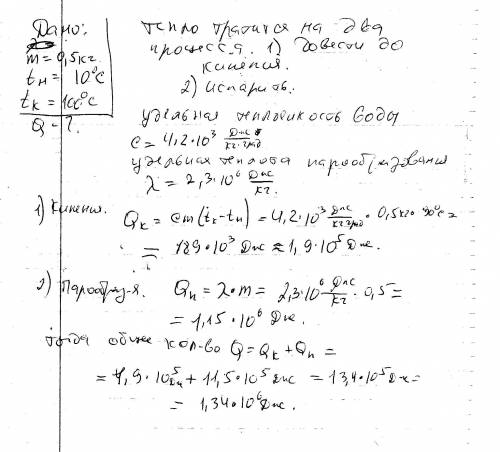 Дано:
m = 0,5 кг.
tн = 10°C
tк = 100°C
Q - ?
тепло тратится на два
процесса. 1) довести до
кипения.
2) испарить.
удельная теплоёмкость воды
c = 4,2·10³ Дж/кг·град
удельная теплота парообразования
λ = 2,3·10⁶ Дж/кг.
1) Кипения. Qк = cm(tк - tн) = 4,2·10³ Дж/кг·град · 0,5кг · 90°C =
= 189·10³ Дж ≈ 1,9·10⁵ Дж.
2) Парообр-я. Qп = λ·m = 2,3·10⁶ Дж/кг · 0,5 =
= 1,15·10⁶ Дж.
Тогда общее кол-во Q = Qк + Qп =
= 1,9·10⁵ Дж + 11,5·10⁵ Дж = 13,4·10⁵ Дж =
= 1,34·10⁶ Дж.